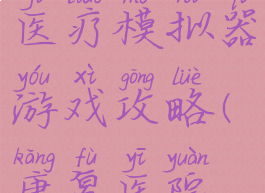 医疗模拟器
yóu xì gōng lüè
游戏攻略(
kāng fù yī yuàn
康复医院